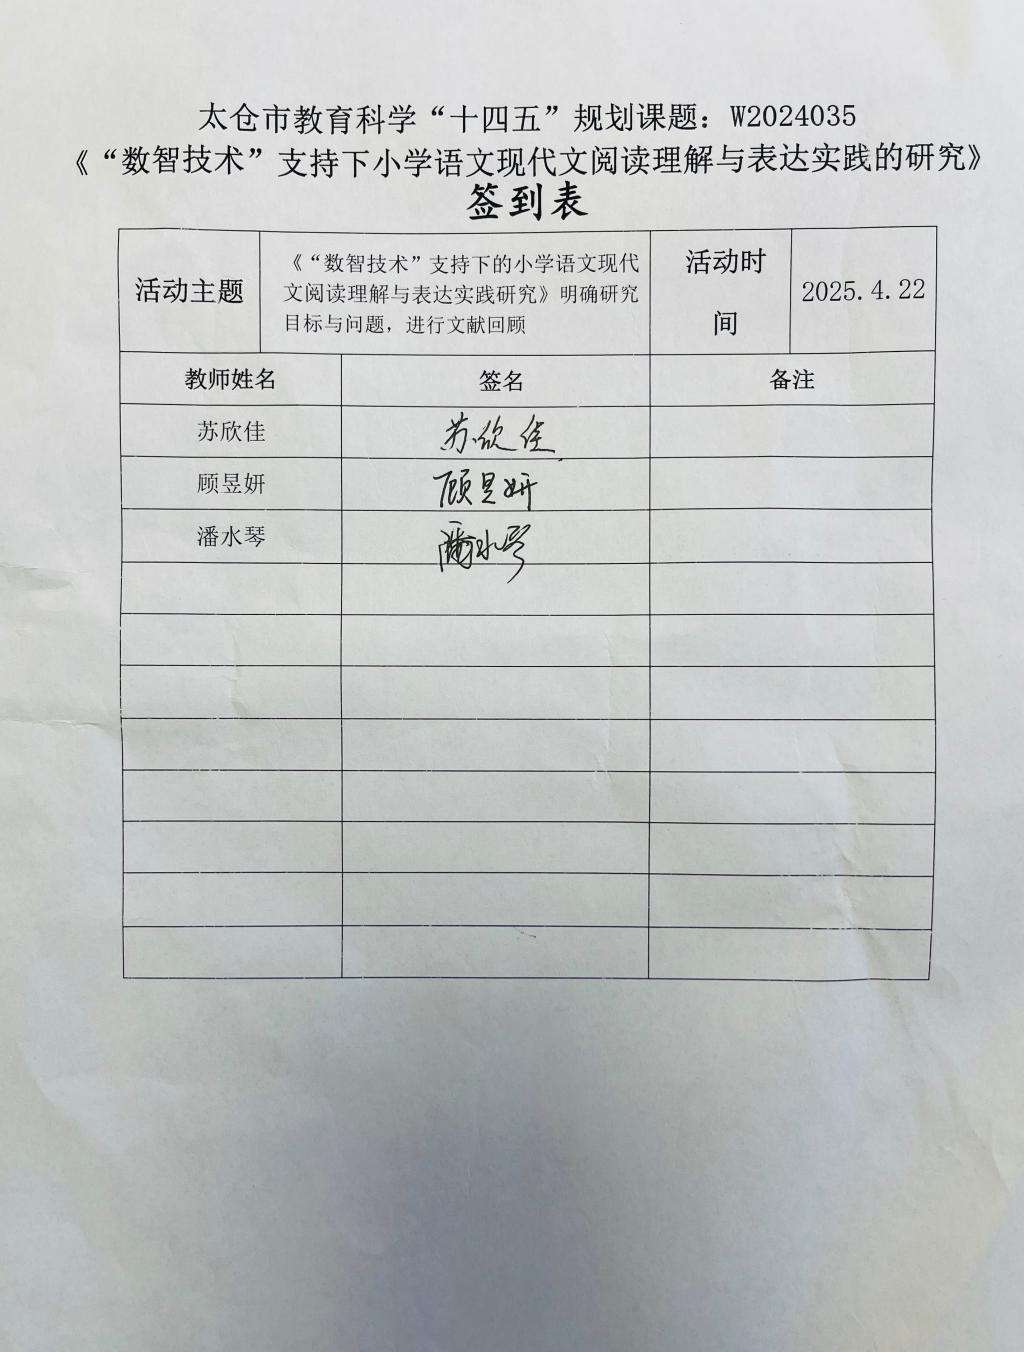 太仓市教育科学“十四五”规划课题：W2024035
《“数智技术”支持下小学语文现代文阅读理解与表达实践的研究》
签到表
活动主题
《“数智技术”支持下的小学语文现代
文阅读理解与表达实践研究》明确研究
目标与问题，进行文献回顾
活动时
间
2025.4.22
教师姓名 签名 备注
苏欣佳 苏欣佳
顾昱妍 顾昱妍
潘水琴 潘水琴